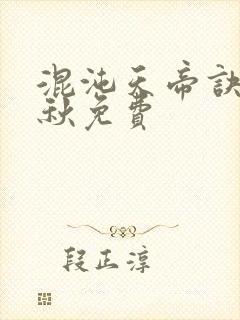 混沌天帝訣
秋免費
段正淳